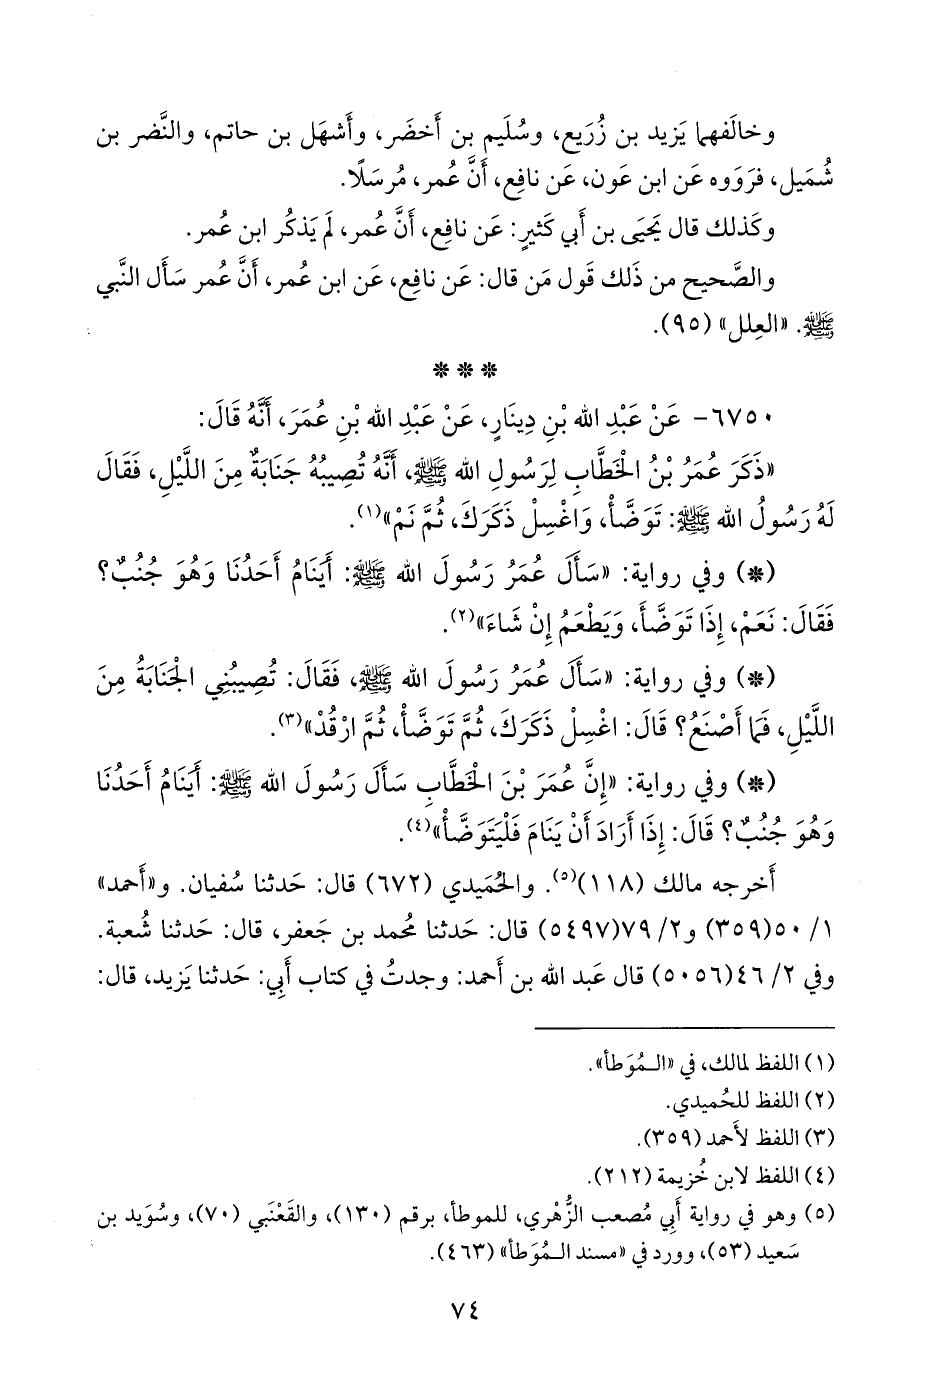 وخالَفهما يَزيد بن زُرَيع، وسُلَيم بن أَخضَر، وأَشهَل بن حاتم، والنَّضر بن
شُمَيل، فرَوَوه عَن ابن عَون، عَن نافِع، أَنَّ عُمر، مُرسَلًا.
وكَذلك قال يَحيَى بن أَبي كَثيرٍ: عَن نافِع، أَنَّ عُمر، لَم يَذكُر ابن عُمر.
والصَّحيح من ذَلك قَول مَن قال: عَن نافِع، عَن ابن عُمر، أَنَّ عُمر سَأَل النَّبي
ﷺ. «العِلل» (٩٥).
* * *
٦٧٥٠- عَنْ عَبْدِ الله بْنِ دِينَارٍ، عَنْ عَبْدِ الله بْنِ عُمَرَ، أَنَّهُ قَالَ:
«ذَكَرَ عُمَرُ بْنُ الْخَطَّابِ لِرَسُولِ الله ﷺ، أَنَّهُ تُصِيبُهُ جَنَابَةٌ مِنَ اللَّيْلِ، فَقَالَ
لَهُ رَسُولُ الله ﷺ: تَوَضَّأْ، وَاغْسِلْ ذَكَرَكَ، ثُمَّ نَمْ»(١).
(*) وفي رواية: «سَأَلَ عُمَرُ رَسُولَ الله ﷺ: أَيَنَامُ أَحَدُنَا وَهُوَ جُنُبٌ؟
فَقَالَ: نَعَمْ، إِذَا تَوَضَّأَ، وَيَطْعَمُ إِنْ شَاءَ»(٢).
(*) وفي رواية: «سَأَلَ عُمَرُ رَسُولَ الله ﷺ، فَقَالَ: تُصِيبُنِي الْجَنَابَةُ مِنَ
اللَّيْلِ، فَمَا أَصْنَعُ؟ قَالَ: اغْسِلْ ذَكَرَكَ، ثُمَّ تَوَضَّأْ، ثُمَّ ارْقُدْ»(٣).
(*) وفي رواية: «إِنَّ عُمَرَ بْنَ الْخَطَّابِ سَأَلَ رَسُولَ الله ﷺ: أَيَنَامُ أَحَدُنَا
وَهُوَ جُنُبٌ؟ قَالَ: إِذَا أَرَادَ أَنْ يَنَامَ فَلْيَتَوَضَّأْ»(٤).
أَخرجه مالك (١١٨)(٥). والحُمَيدي (٦٧٢) قال: حَدثنا سُفيان. و«أَحمد»
١/ ٥٠(٣٥٩) و٢/ ٧٩(٥٤٩٧) قال: حَدثنا مُحمد بن جَعفر، قال: حَدثنا شُعبة.
وفي ٢/ ٤٦(٥٠٥٦) قال عَبد الله بن أَحمد: وجدتُ في كتاب أَبِي: حَدثنا يَزيد، قال:
(١) اللفظ لمالك، في «المُوَطأ».
(٢) اللفظ للحُميدي.
(٣) اللفظ لأَحمد (٣٥٩).
(٤) اللفظ لابن خُزيمة (٢١٢).
(٥) وهو في رواية أَبِي مُصعب الزُّهري، للموطأ، برقم (١٣٠)، والقَعْنَبي (٧٠)، وسُوَيد بن
سَعيد (٥٣)، وورد في «مسند المُوَطأ» (٤٦٣).
٧٤